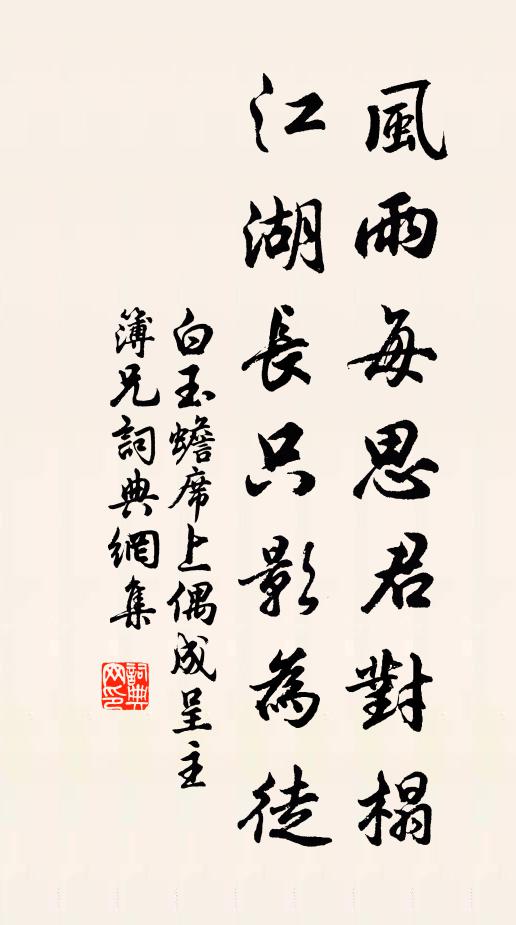 風雨每思君對榻
江湖長只影為徒
白玉蟾席上偶成呈主
簿兄詞典網集
詞典
网印